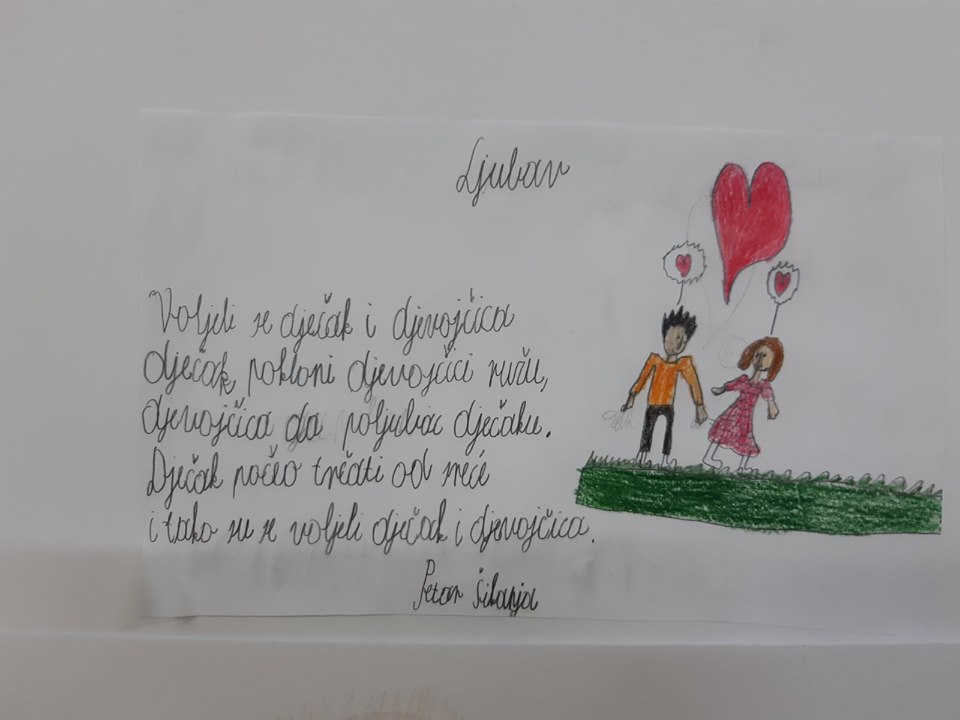 Ljubav
Voljeli se dječak i djevojčica
dječak pokloni djevojčici ružu,
djevojčica da poljubac dječaku.
Dječak počeo trčati od sreće
i tako su se voljeli dječak i djevojčica.
Petar Šikanja